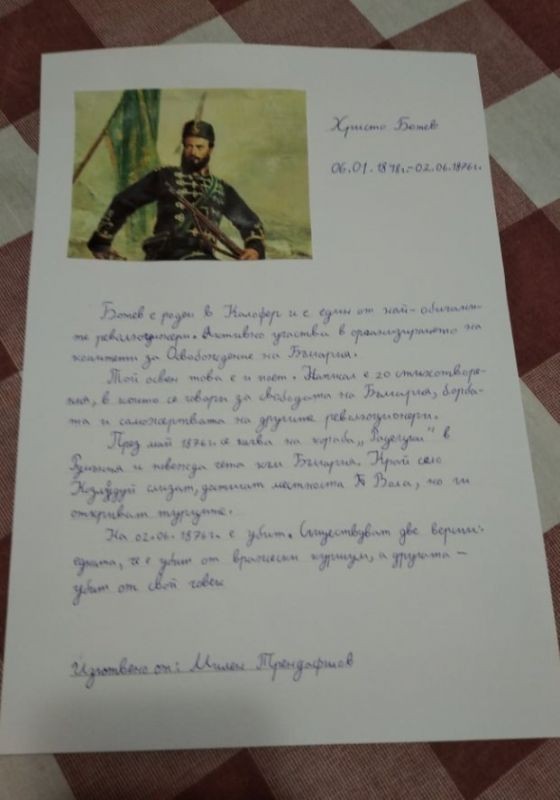 Христо Ботев
06.01.1848г.-02.06.1876г.
Ботев е роден в Калофер и е един от най-обичани-
те революционери. Активно участва в организирането на
комитети за Освобождение на България.
Той освен това е и поет. Написал е 20 стихотворе-
ния, в които се говори за свободата на България, борба-
та и саможертвата на другите революционери.
През май 1876г. се качва на кораба „Радецки" в
Румъния и повежда чета към България. Край село
Козлодуй слизат, достигат местността Вола, но ги
откриват турците.
На 02.06.1876г. е убит. Съществуват две версии:
едната, че е убит от вражески куршум, а другата –
убит от свой човек
Изготвено от: Милен Трендафилов